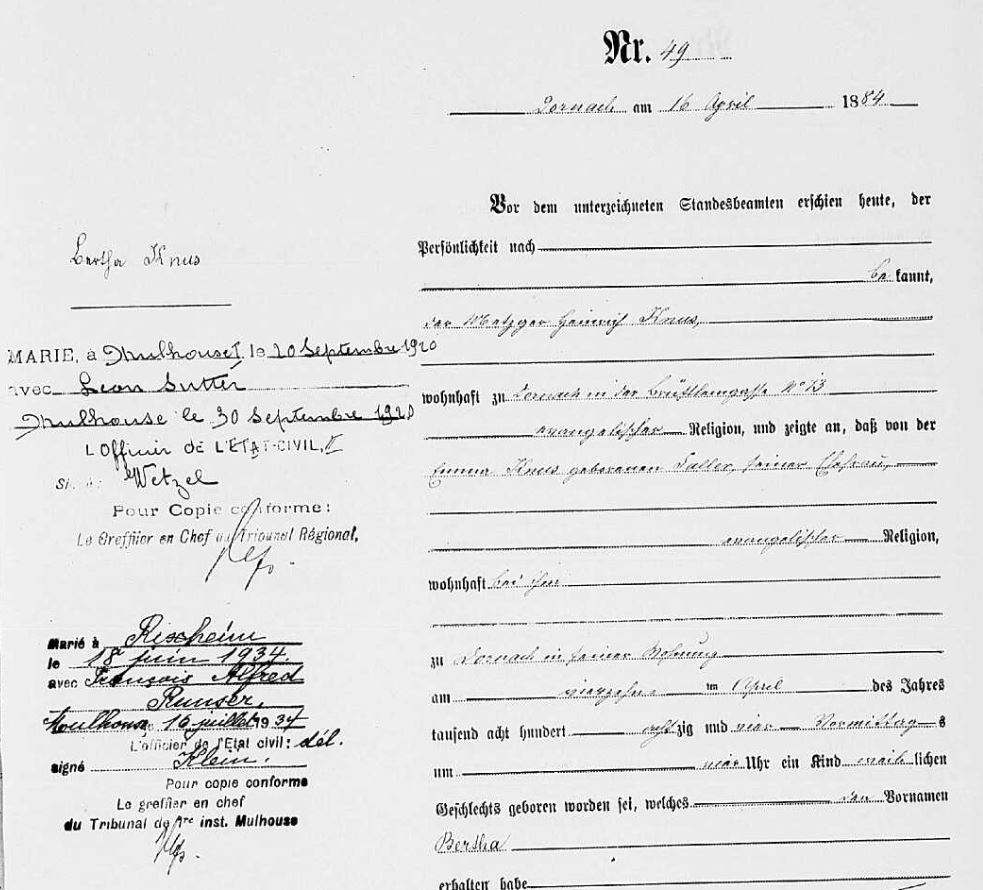 Nr. 49
Dornach am 16 April 1884
Vor dem unterzeichneten Standesbeamten erschien heute, der
Persönlichkeit nach
be kannt,
der Metzger Heinrich Knus,
wohnhaft zu Dornach in der Brüstleingasse N° 13
evangelischer Religion, und zeigte an, daß von der
Emma Knus geborenen Faller, seiner Ehefrau,
evangelischer Religion,
wohnhaft bei ihm
zu Dornach in seiner Wohnung
am vierzehn ten April des Jahres
tausend acht hundert achtzig und vier Vormittag s
um vier Uhr ein Kind weiblichen
Geschlechts geboren worden sei, welches den Vornamen
Bertha
erhalten habe
Bertha Knus
MARIE, à Mulhouse I, le 20 Septembre 1920
avec Leon Sutter
Mulhouse le 30 Septembre 1920
L'Officier de L'ETAT-CIVIL, II
Wetzel
Pour Copie conforme:
Le Greffier en Chef du Tribunal Régional,
Marié à Rixheim
le 18 juin 1934.
avec François Alfred
Runser.
Mulhouse 16 juillet 1934
L'officier de l'Etat civil: dél.
signé Klein.
Pour copie conforme
Le greffier en chef
du Tribunal de 1re inst. Mulhouse